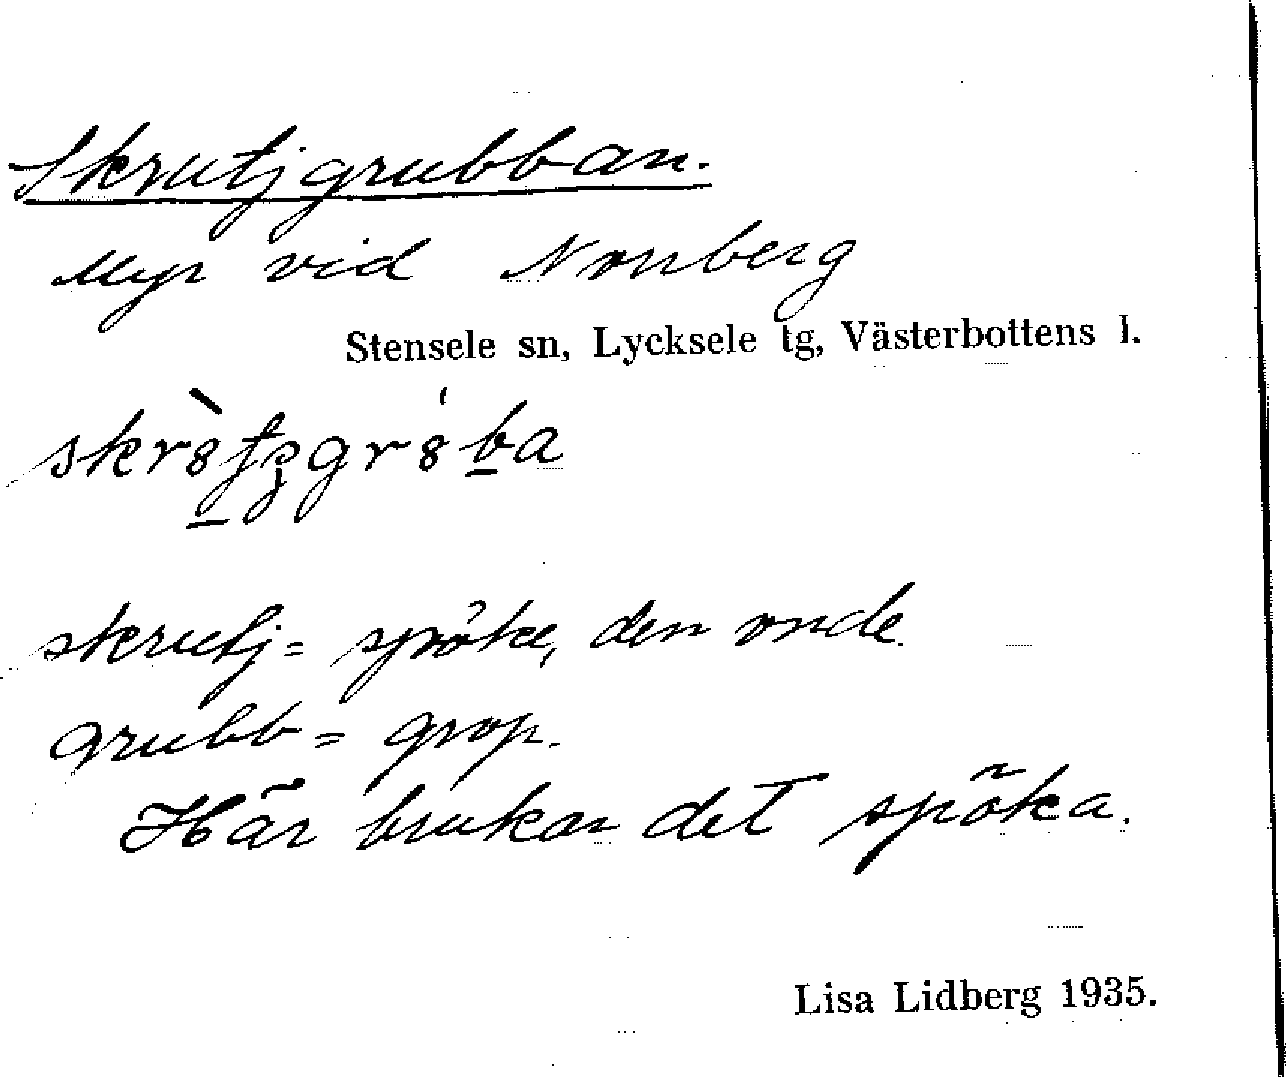 Skrutjgrubban.
Myr vid Norrberg
Stensele sn, Lycksele tg, Västerbottens l.
skrutj = spöke, den onde.
grubb = grop.
Här brukar det spöka.
Lisa Lidberg 1935.